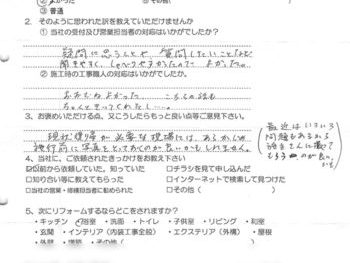 ③ 普通
2. そのように思われた訳を教えていただけませんか
① 当社の受付及び営業担当者の対応はいかがでしたか？
疑問に思うことや質問したいことなど
聞きやすく、しゃべりやすかったので よかった。
② 施工時の工事職人の対応はいかがでしたか？
おおむねよかった こちらの話も
ちゃんときいてくれた。
3. お褒めいただける点、又こうしたらもっと良い点等ご意見下さい
現状復帰が必要な現場には、あるかじめ
施行前に写真をとっておくのが良いかもしれません。
最近はいろいろ
問題もあるから
4. 当社に、ご依頼されたきっかけをお教え下さい
以前から依頼していた、知っていた □チラシを見て申し込んだ
□知り合い等に教えてもらった □インターネットで検索して見つけた
□当社の営業・修繕担当者に勧められた □その他（ ）
5. 次にリフォームするならどこをされますか？
・キッチン ・浴室 ・洗面 ・トイレ ・子供室 ・リビング ・和室
・玄関 ・インテリア（内装工事全般） ・エクステリア（外構） ・屋根
・外壁 ・増築 ・その他（ ）